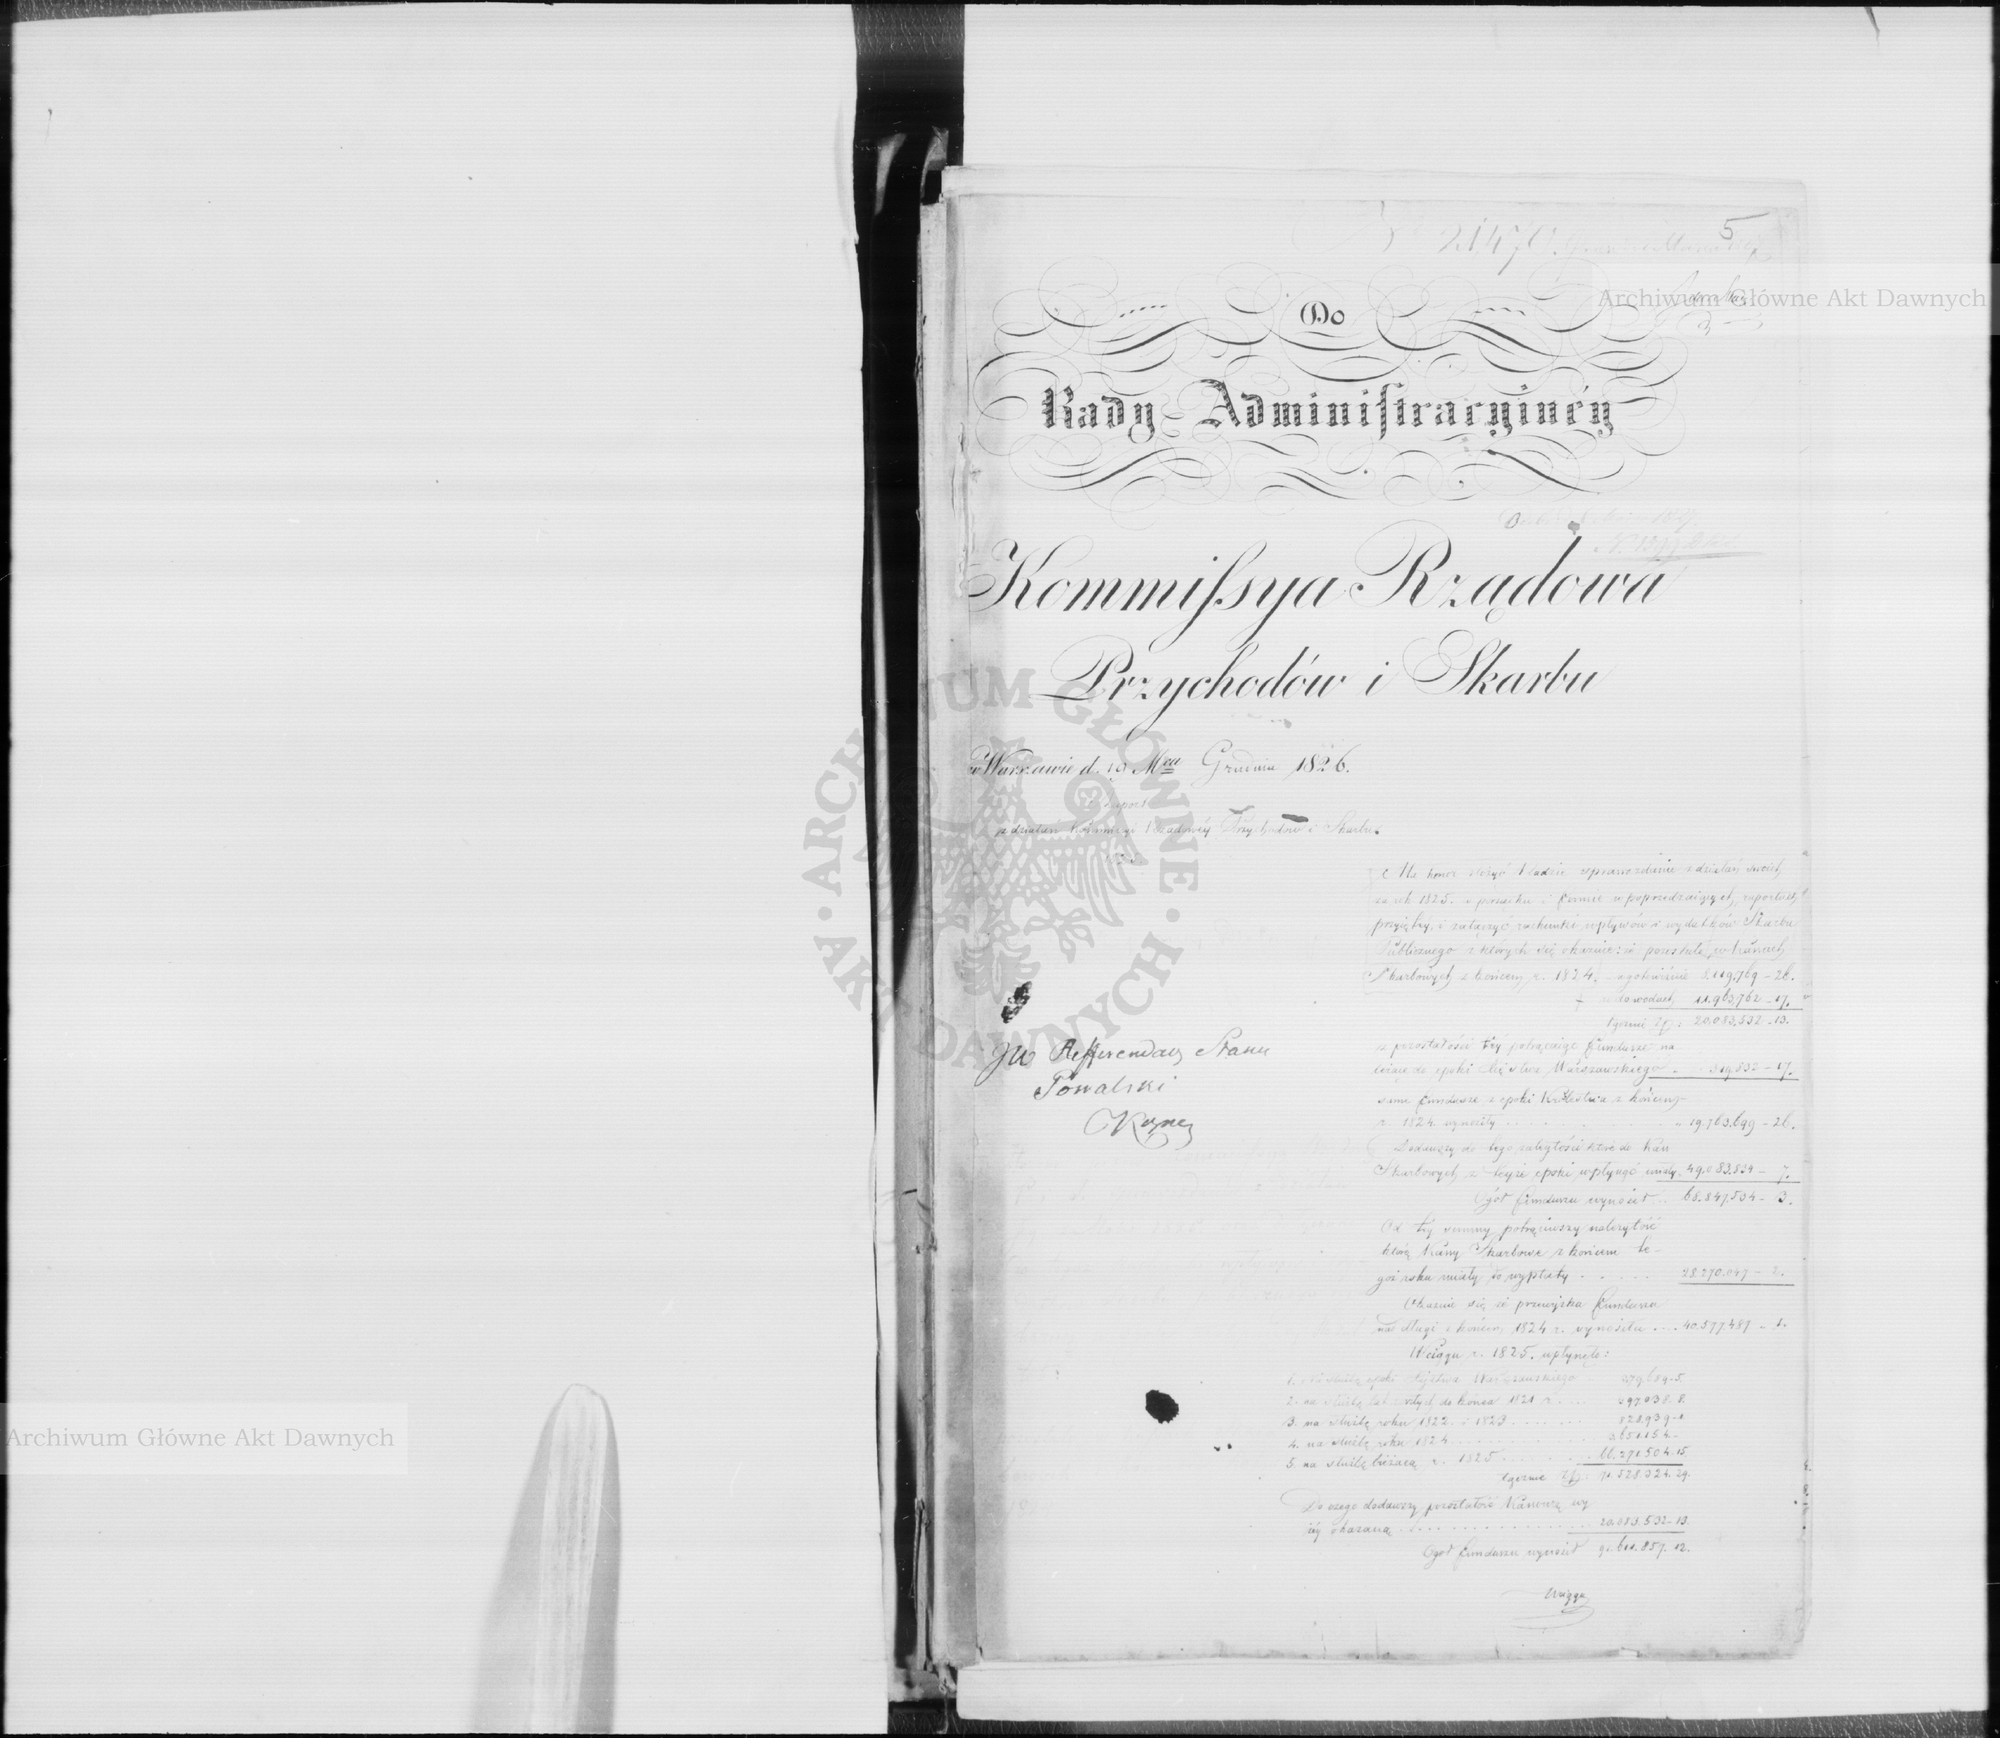 5
21470
Do
Rady Administracyinéy
Kommissya Rządowa
Przychodów i Skarbu
w Warszawie d. 19 Mca Grudnia 1826.
Raport
z działań Kommissyi Rządowéy Przychodów i Skarbu
1825
Ma honor złożyć Radzie sprawozdanie z działań swoich
za rok 1825. w porządku i formie w poprzedzaiących raportach
przyiętéy, i załączyć rachunki wpływów i wydatków Skarbu
Publicznego z których się okazuie: że pozostało w kassach
Skarbowych z końcem r. 1824. w gotowiźnie 8.119,769 - 26.
w dowodach 11,963,762 - 17.
łącznie zł: 20,083,532 - 13.
z pozostałości téy potrąciwszy fundusze na
leżące do epoki Xięstwa Warszawskiego 319,832 - 17.
same fundusze z epoki Królestwa z końcem
r. 1824. wynosiły 19,763,699 - 26.
Dodawszy do tego zaległości które do Kass
Skarbowych z teyże epoki wpłynąć miały 49,083,834 - 7.
Ogół funduszu wynosił 68.847,534 - 3.
Od téy summy potrąciwszy należytość
którą Kassy Skarbowe z końcem te-
goż roku miały do wypłaty 28.270,047 - 2.
Okazuie się że przewyżka funduszu
nad długi z końcem 1824 r. wynosiła 40.577,487 - 1.
W ciągu r. 1825. wpłynęło:
1. na służbę epoki Xięstwa Warszawskiego 279,689 - 5.
2. na służbę lat do końca 1821 r. 497,038. 8.
3. na służbę roku 1822. i 1823 828,939 - 1.
4. na służbę roku 1824
5. na służbę bieżącą r. 1825 66.271.504. 15.
łącznie zł: 71.528.324. 29.
Do czego dodawszy pozostałość Kassową wy
żéy okazaną 20,083,532 - 13.
Ogół funduszu wynosił 91.611.857. 12.
w ciągu
JW Refferendarz Stanu
Kowalski
Archiwum Główne Akt Dawnych
Archiwum Główne Akt Dawnych
ARCHIWUM GŁÓWNE
AKT DAWNYCH